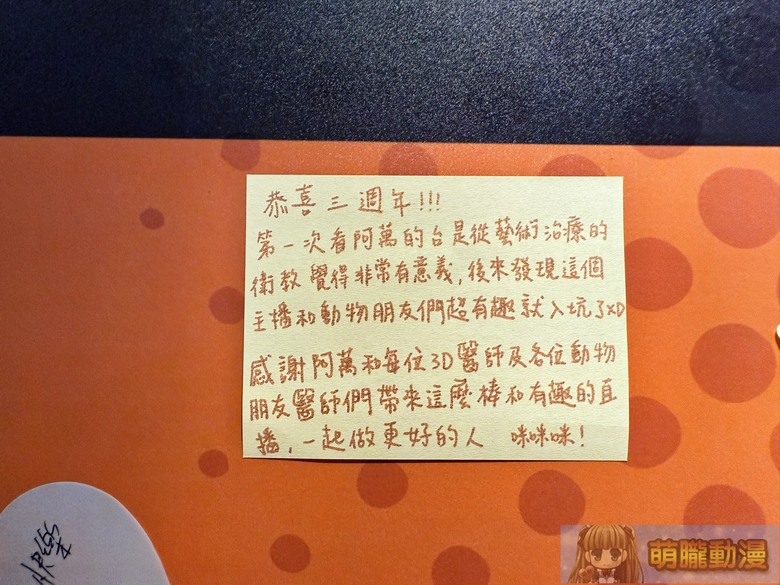 恭喜三週年!!!
第一次看阿萬的台是從藝術治療的
衛教 覺得非常有意義,後來發現這個
主播和動物朋友們超有趣就入坑了xD
感謝阿萬和每位3D醫師及各位動物
朋友醫師們帶來這麼棒和有趣的直
播,一起做更好的人 咪咪咪!
快樂
萌朧動漫